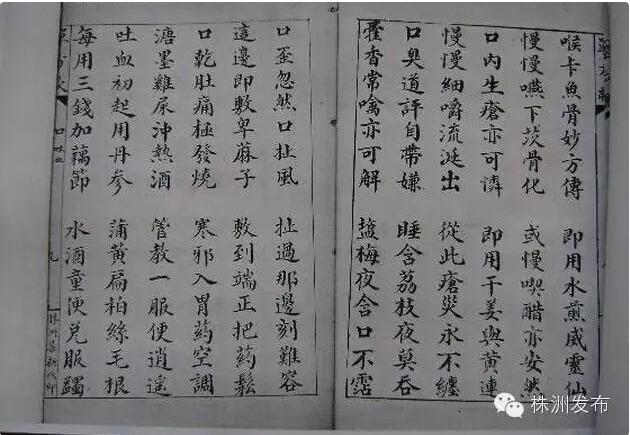 喉卡魚骨妙方傳　即用水煎威靈仙
慢慢嚥下茨骨化　或慢喫醋亦安然
口內生瘡亦可憐　即用干姜與黃連
慢慢細嚼流涎出　從此瘡災永不纏
口臭道評自帶嫌　睡含荔枝夜莫吞
藿香常噙亦可解　鹽梅夜含口不霑
口歪忽然口扯風　扯過那邊刻難容
這邊即敷卑蔴子　敷到端正把葯鬆
口乾肚痛極發燒　寒邪入胃葯空調
溏墨雞屎沖熱酒　管教一服便逍遥
吐血初起用丹參　蒲黃扁柏絲毛根
每用三錢加藕節　水酒童便兌服蠲
九
株洲发布